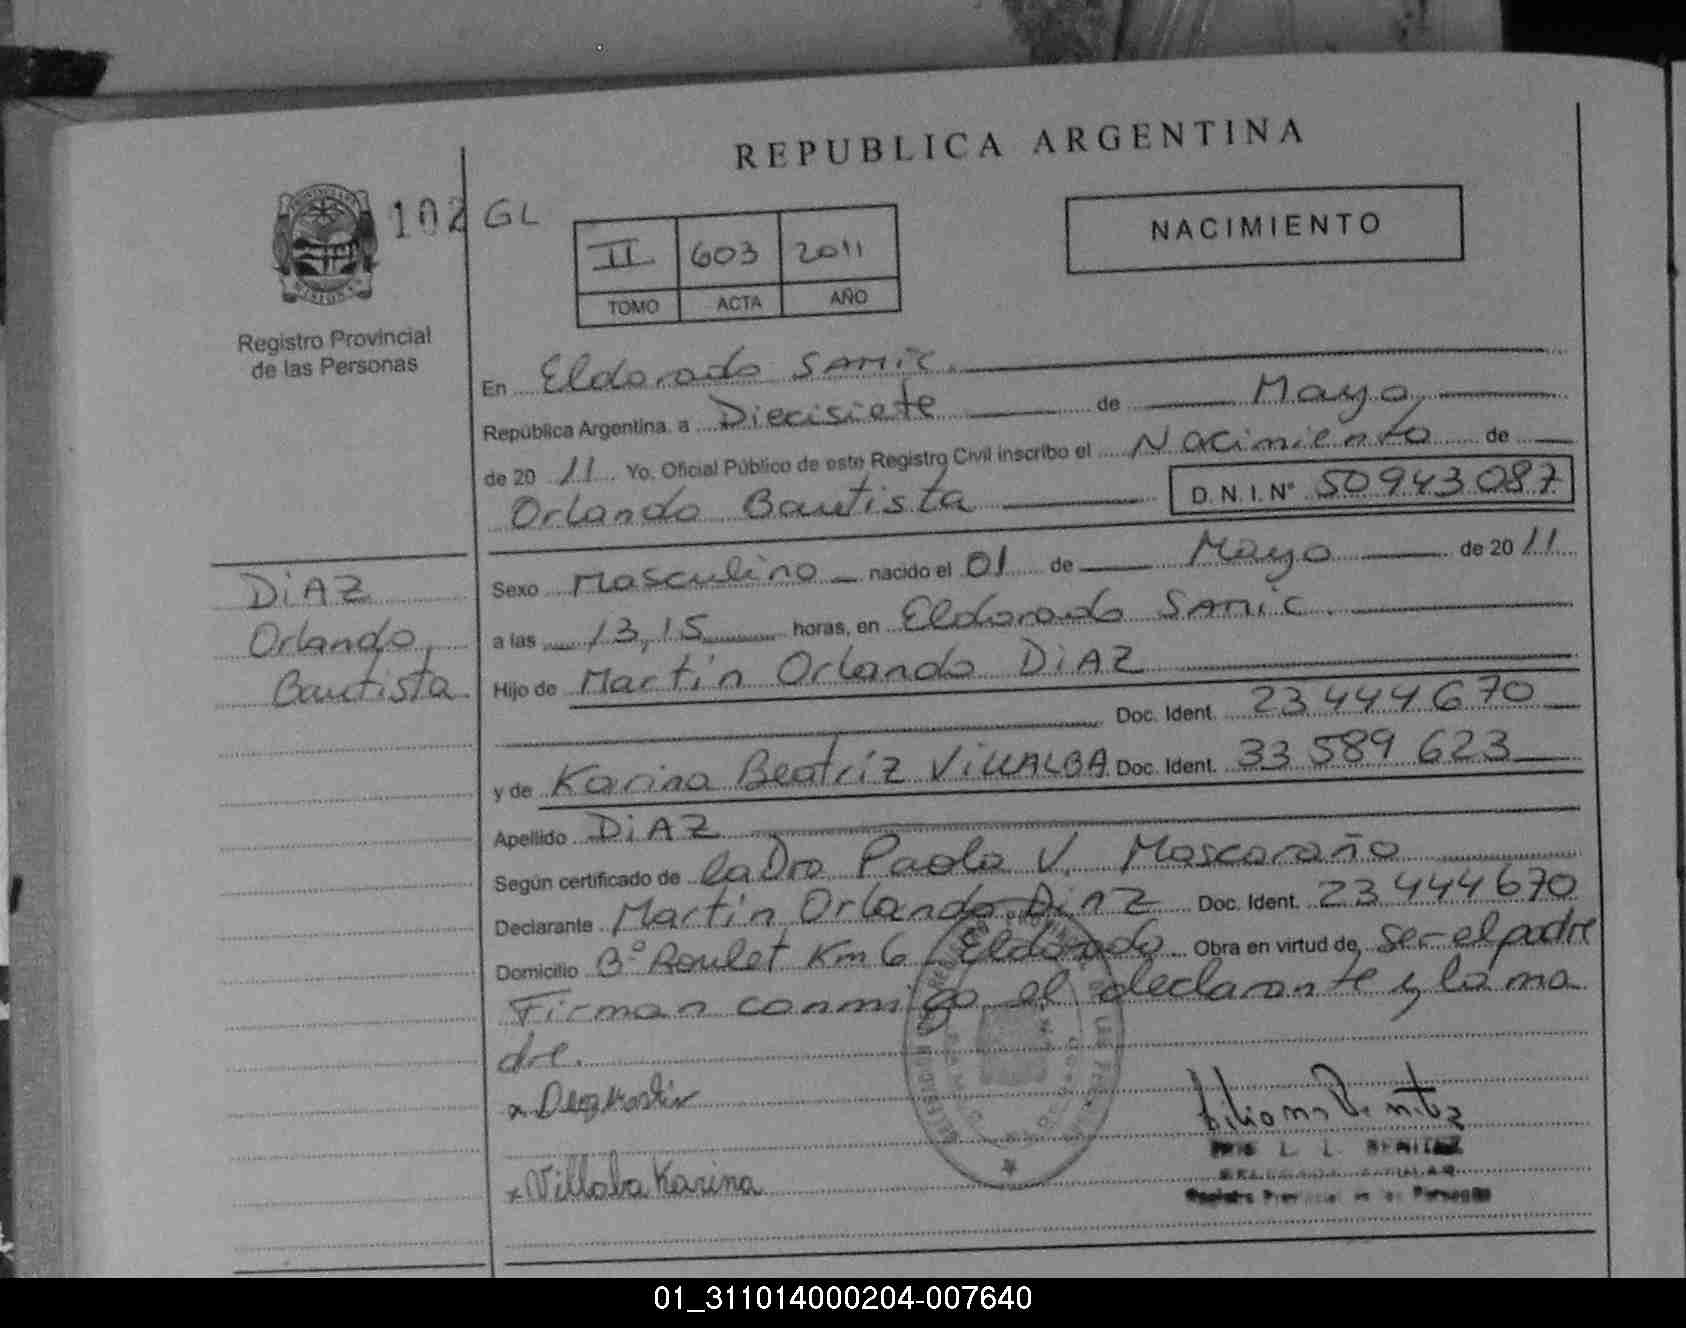 REPUBLICA ARGENTINA
102 GL
NACIMIENTO
II 603 2011
TOMO ACTA AÑO
Registro Provincial
de las Personas
En Eldorado SAMIC.
República Argentina, a Diecisiete de Mayo
de 2011 Yo, Oficial Público de este Registro Civil inscribo el Nacimiento de
Orlando Bautista D.N.I.Nº 50943087
DiAZ
Orlando
Bautista
Sexo Masculino nacido el 01 de Mayo de 2011
a las 13,15 horas, en Eldorado SAMIC.
Hijo de Martín Orlando DiAZ
Doc. Ident. 23444670
y de Karina Beatriz ViLLALBA Doc. Ident. 33 589 623
Apellido DiAZ
Según certificado de la Dra Paola V. Moscoroño
Declarante Martín Orlando DiAZ Doc. Ident. 23444670
Domicilio Bº Roulet Km 6 Eldorado Obra en virtud de ser el padre
Firman conmigo el declarante y la ma
dre.
x Diaz Martin
x Villalba Karina
Liliana Benitez
L. I. BENITEZ
Registro Provincial de las Personas
01_311014000204-007640